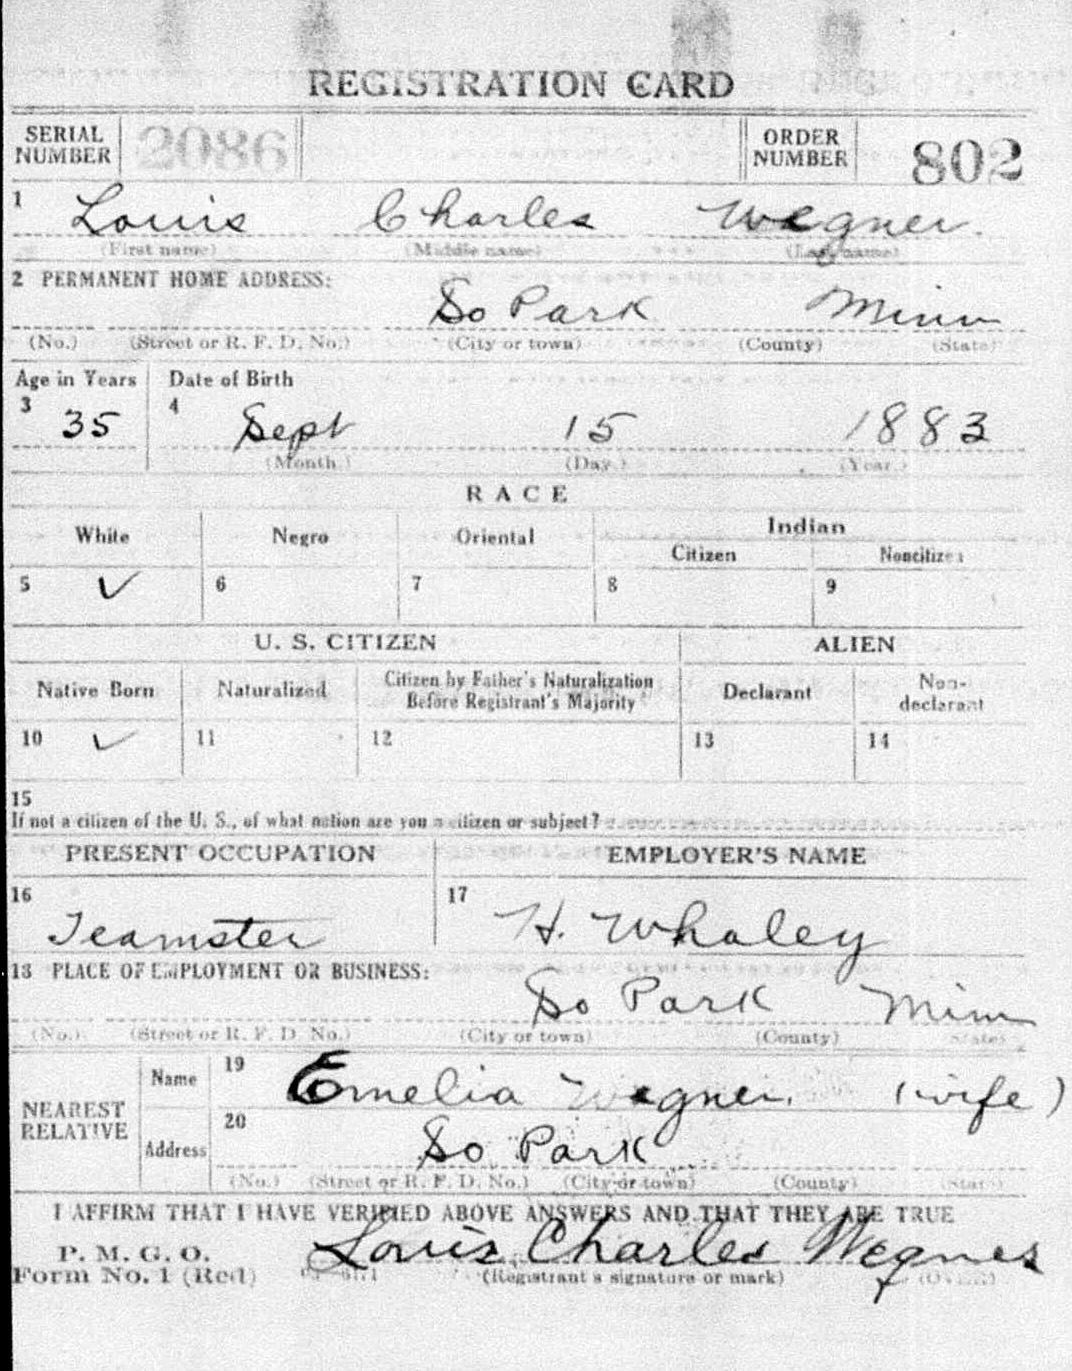 REGISTRATION CARD
SERIAL NUMBER 2086 ORDER NUMBER 802
1 Louis Charles Wegner.
(First name) (Middle name) (Last name)
2 PERMANENT HOME ADDRESS:
So Park Minn
(No.) (Street or R. F. D. No.) (City or town) (County) (State)
Age in Years Date of Birth
3 35 4 Sept 15 1883
(Month.) (Day.) (Year.)
RACE
White Negro Oriental Indian
Citizen Noncitizen
5 ✓ 6 7 8 9
U. S. CITIZEN ALIEN
Native Born Naturalized Citizen by Father's Naturalization Before Registrant's Majority Declarant Non-declarant
10 ✓ 11 12 13 14
15
If not a citizen of the U. S., of what nation are you a citizen or subject?
PRESENT OCCUPATION EMPLOYER'S NAME
16 Teamster 17 H. Whaley
18 PLACE OF EMPLOYMENT OR BUSINESS:
So Park Minn
(No.) (Street or R. F. D. No.) (City or town) (County) (State)
NEAREST RELATIVE
Name 19 Emelia Wegner. (wife)
Address 20 So Park
(No.) (Street or R. F. D. No.) (City or town) (County) (State)
I AFFIRM THAT I HAVE VERIFIED ABOVE ANSWERS AND THAT THEY ARE TRUE
P. M. G. O.
Form No. 1 (Red) Louis Charles Wegner
(Registrant's signature or mark) (OVER)